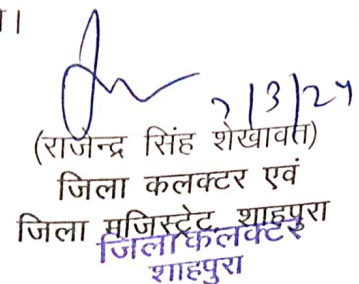 ।
7/3/24
(राजेन्द्र सिंह शेखावत)
जिला कलक्टर एवं
जिला मजिस्ट्रेट, शाहपुरा
जिला कलक्टर
शाहपुरा